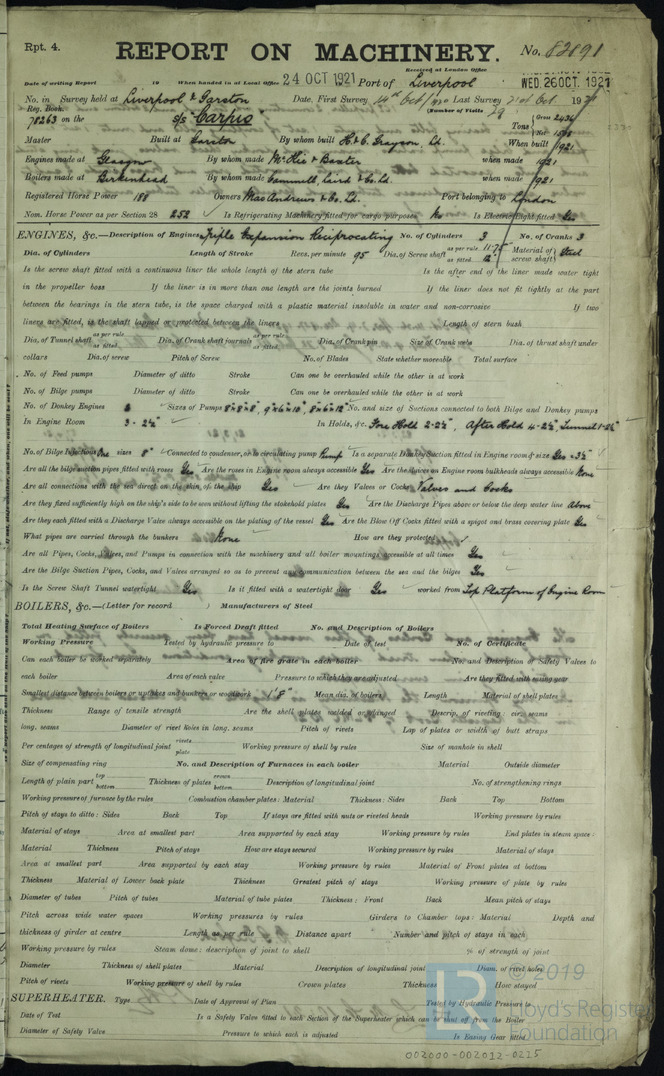 Rpt. 4.
REPORT ON MACHINERY.
No. 82891
Received at London Office
WED. 26 OCT. 1921
Date of writing Report 19 When handed in at Local Office 24 OCT 1921 Port of Liverpool
No. in Survey held at Liverpool & Garston Date, First Survey Last Survey 19
Reg. Book. (Number of Visits
78263 on the S/S "Carpio" Tons Gross 2434 Net
Master Built at Garston By whom built H. & C. Grayson, Ld. When built 1921
Engines made at Glasgow By whom made McKie & Baxter when made 1921
Boilers made at Birkenhead By whom made Cammell, Laird & Co. Ld. when made 1921
Registered Horse Power 188 Owners MacAndrews & Co. Ld. Port belonging to London
Nom. Horse Power as per Section 28 252 Is Refrigerating Machinery fitted for cargo purposes No Is Electric Light fitted Yes
ENGINES, &c.—Description of Engines Triple Expansion Reciprocating No. of Cylinders 3 No. of Cranks 3
Dia. of Cylinders Length of Stroke Revs. per minute 95 Dia. of Screw shaft as per rule 11.75 as fitted 12" Material of screw shaft Steel
Is the screw shaft fitted with a continuous liner the whole length of the stern tube Is the after end of the liner made water tight
in the propeller boss If the liner is in more than one length are the joints burned If the liner does not fit tightly at the part
between the bearings in the stern tube, is the space charged with a plastic material insoluble in water and non-corrosive If two
liners are fitted, is the shaft lapped or protected between the liners Length of stern bush
Dia. of Tunnel shaft as per rule as fitted Dia. of Crank shaft journals as per rule as fitted Dia. of Crank pin Size of Crank webs Dia. of thrust shaft under
collars Dia. of screw Pitch of Screw No. of Blades State whether moveable Total surface
No. of Feed pumps Diameter of ditto Stroke Can one be overhauled while the other is at work
No. of Bilge pumps Diameter of ditto Stroke Can one be overhauled while the other is at work
No. of Donkey Engines 3 Sizes of Pumps No. and size of Suctions connected to both Bilge and Donkey pumps
In Engine Room 3 - 2½" In Holds, &c. Fore Hold 2-2½", After Hold 4-2½", Tunnel 1-2½"
No. of Bilge Injections One sizes 8" Connected to condenser, or to circulating pump Pump Is a separate Donkey Suction fitted in Engine room & size Yes - 3½"
Are all the bilge suction pipes fitted with roses Yes Are the roses in Engine room always accessible Yes Are the sluices on Engine room bulkheads always accessible None
Are all connections with the sea direct on the skin of the ship Yes Are they Valves or Cocks Valves and Cocks
Are they fixed sufficiently high on the ship's side to be seen without lifting the stokehold plates Yes Are the Discharge Pipes above or below the deep water line Above
Are they each fitted with a Discharge Valve always accessible on the plating of the vessel Yes Are the Blow Off Cocks fitted with a spigot and brass covering plate Yes
What pipes are carried through the bunkers None How are they protected
Are all Pipes, Cocks, Valves, and Pumps in connection with the machinery and all boiler mountings accessible at all times Yes
Are the Bilge Suction Pipes, Cocks, and Valves arranged so as to prevent any communication between the sea and the bilges Yes
Is the Screw Shaft Tunnel watertight Yes Is it fitted with a watertight door Yes worked from Top Platform of Engine Room
BOILERS, &c.—(Letter for record ) Manufacturers of Steel
Total Heating Surface of Boilers Is Forced Draft fitted No. and Description of Boilers
Working Pressure Tested by hydraulic pressure to Date of test No. of Certificate
Can each boiler be worked separately Area of fire grate in each boiler No. and Description of Safety Valves to
each boiler Area of each valve Pressure to which they are adjusted Are they fitted with easing gear
Smallest distance between boilers or uptakes and bunkers or woodwork 1' 8" Mean dia. of boilers Length Material of shell plates
Thickness Range of tensile strength Are the shell plates welded or flanged Descrip. of riveting: cir. seams
long. seams Diameter of rivet holes in long. seams Pitch of rivets Lap of plates or width of butt straps
Per centages of strength of longitudinal joint rivets plate Working pressure of shell by rules Size of manhole in shell
Size of compensating ring No. and Description of Furnaces in each boiler Material Outside diameter
Length of plain part top bottom Thickness of plates crown bottom Description of longitudinal joint No. of strengthening rings
Working pressure of furnace by the rules Combustion chamber plates: Material Thickness: Sides Back Top Bottom
Pitch of stays to ditto: Sides Back Top If stays are fitted with nuts or riveted heads Working pressure by rules
Material of stays Area at smallest part Area supported by each stay Working pressure by rules End plates in steam space:
Material Thickness Pitch of stays How are stays secured Working pressure by rules Material of stays
Area at smallest part Area supported by each stay Working pressure by rules Material of Front plates at bottom
Thickness Material of Lower back plate Thickness Greatest pitch of stays Working pressure of plate by rules
Diameter of tubes Pitch of tubes Material of tube plates Thickness: Front Back Mean pitch of stays
Pitch across wide water spaces Working pressures by rules Girders to Chamber tops: Material Depth and
thickness of girder at centre Length as per rule Distance apart Number and pitch of stays in each
Working pressure by rules Steam dome: description of joint to shell % of strength of joint
Diameter Thickness of shell plates Material Description of longitudinal joint Diam. of rivet holes
Pitch of rivets Working pressure of shell by rules Crown plates Thickness How stayed
SUPERHEATER. Type Date of Approval of Plan Tested by Hydraulic Pressure to
Date of Test Is a Safety Valve fitted to each Section of the Superheater which can be shut off from the Boiler
Diameter of Safety Valve Pressure to which each is adjusted Is Easing Gear fitted
© 2019
Lloyd's Register
Foundation
002000-002012-0215